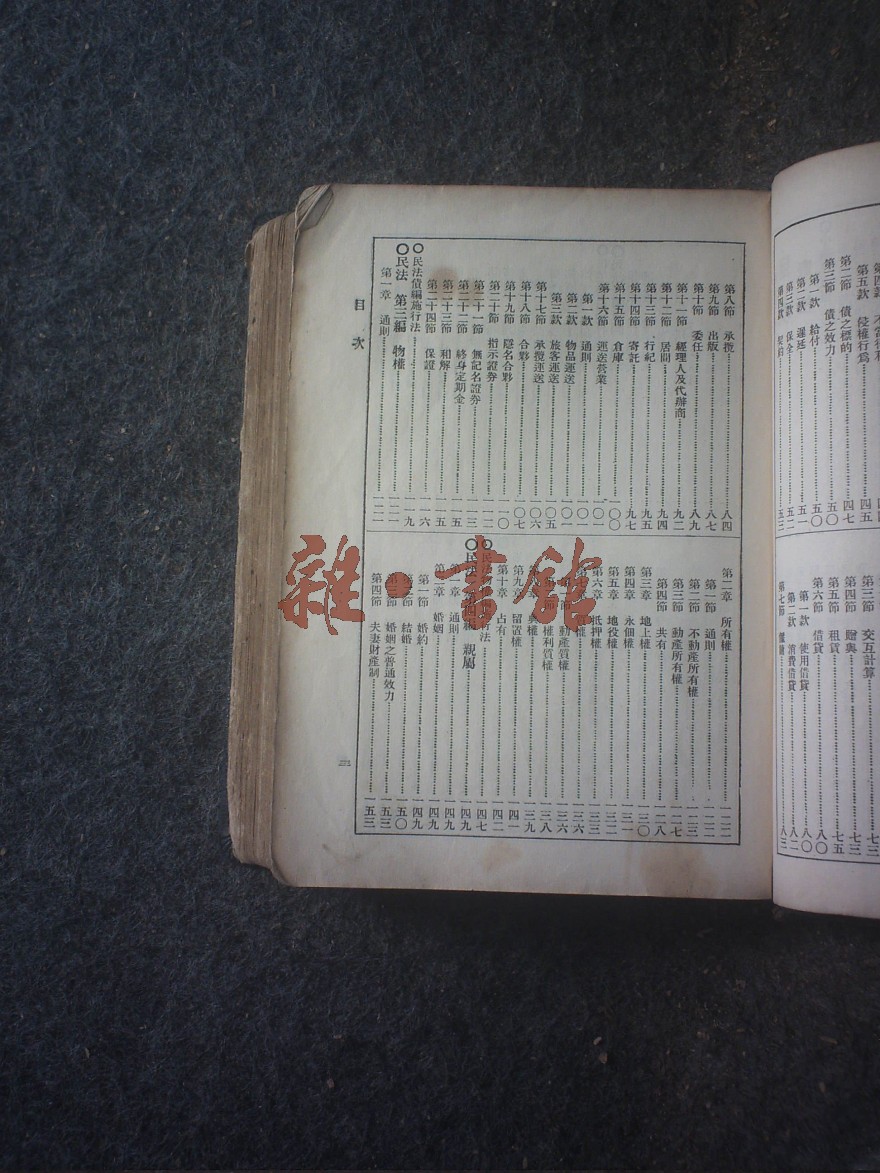 第五款 侵權行爲……四五
第二節 債之標的……四七
第三節 債之效力……五〇
第一款 給付……五〇
第二款 遲延……五一
第三款 保全……五二
第四款 契約……五三
第三節 交互計算……七三
第四節 贈與……七三
第五節 租賃……七五
第六節 借貸……八〇
第一款 使用借貸……八〇
第二款 消費借貸……八二
第七節 僱傭……八三
第八節 承攬……八四
第九節 出版……八七
第十節 委任……八九
第十一節 經理人及代辦商……九二
第十二節 居間……九四
第十三節 行紀……九五
第十四節 寄託……九七
第十五節 倉庫……一〇〇
第十六節 運送營業……一〇一
第一款 通則……一〇一
第二款 物品運送……一〇一
第三款 旅客運送……一〇五
第十七節 承攬運送……一〇六
第十八節 合夥……一〇七
第十九節 隱名合夥……一一〇
第二十節 指示證券……一一二
第二十一節 無記名證券……一一三
第二十二節 終身定期金……一一五
第二十三節 和解……一一五
第二十四節 保證……一一六
〇民法債編施行法……一一九
〇民法 第三編 物權……一二一
第一章 通則……一二一
第二章 所有權……一二二
第一節 通則……一二二
第二節 不動產所有權……一二三
第三節 動產所有權……一二七
第四節 共有……一二八
第三章 地上權……一三〇
第四章 永佃權……一三一
第五章 地役權……一三二
第六章 抵押權……一三三
第七章 質權……一三六
第一節 動產質權……一三六
第二節 權利質權……一三八
第八章 典權……一三九
第九章 留置權……一四一
第十章 占有……一四二
〇民法物權編施行法……一四七
〇民法 第四編 親屬……一四九
第一章 通則……一四九
第二章 婚姻……一四九
第一節 婚約……一四九
第二節 結婚……一五〇
第三節 婚姻之普通效力……一五三
第四節 夫妻財產制……一五三
目次
雜·書館